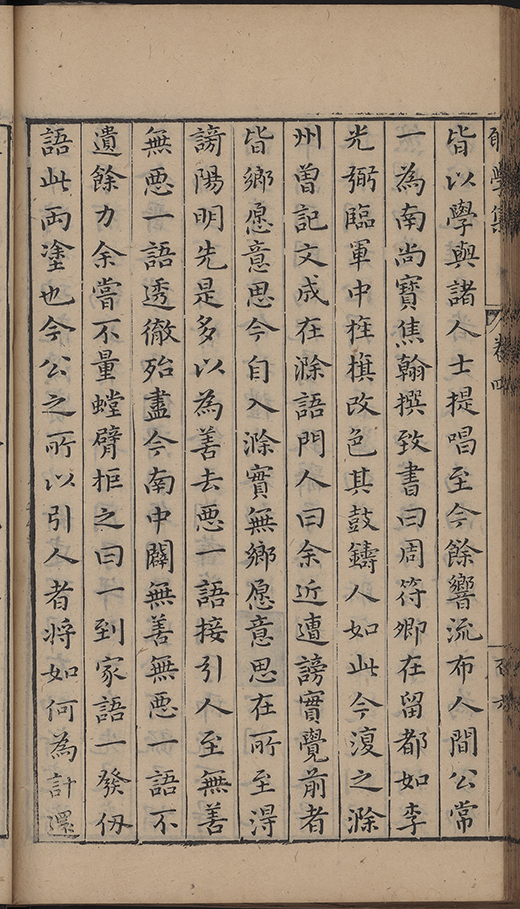 學集
卷四
皆以學與諸人士提唱至今餘響流布人間公常
一為南尚寶焦翰撰致書曰周符卿在留都如李
光弼臨軍中旌旗改色其鼓鑄人如此今復之滁
州曾記文成在滁語門人曰余近遭謗實覺前者
皆鄉愿意思今自入滁實無鄉愿意思在所至得
謗陽明先是多以為善去惡一語接引人至無善
無惡一語透徹殆盡今南中闢無善無惡一語不
遺餘力余嘗不量螳臂柜之曰一到家語一發仞
語此兩塗也今公之所以引人者將如何為計還